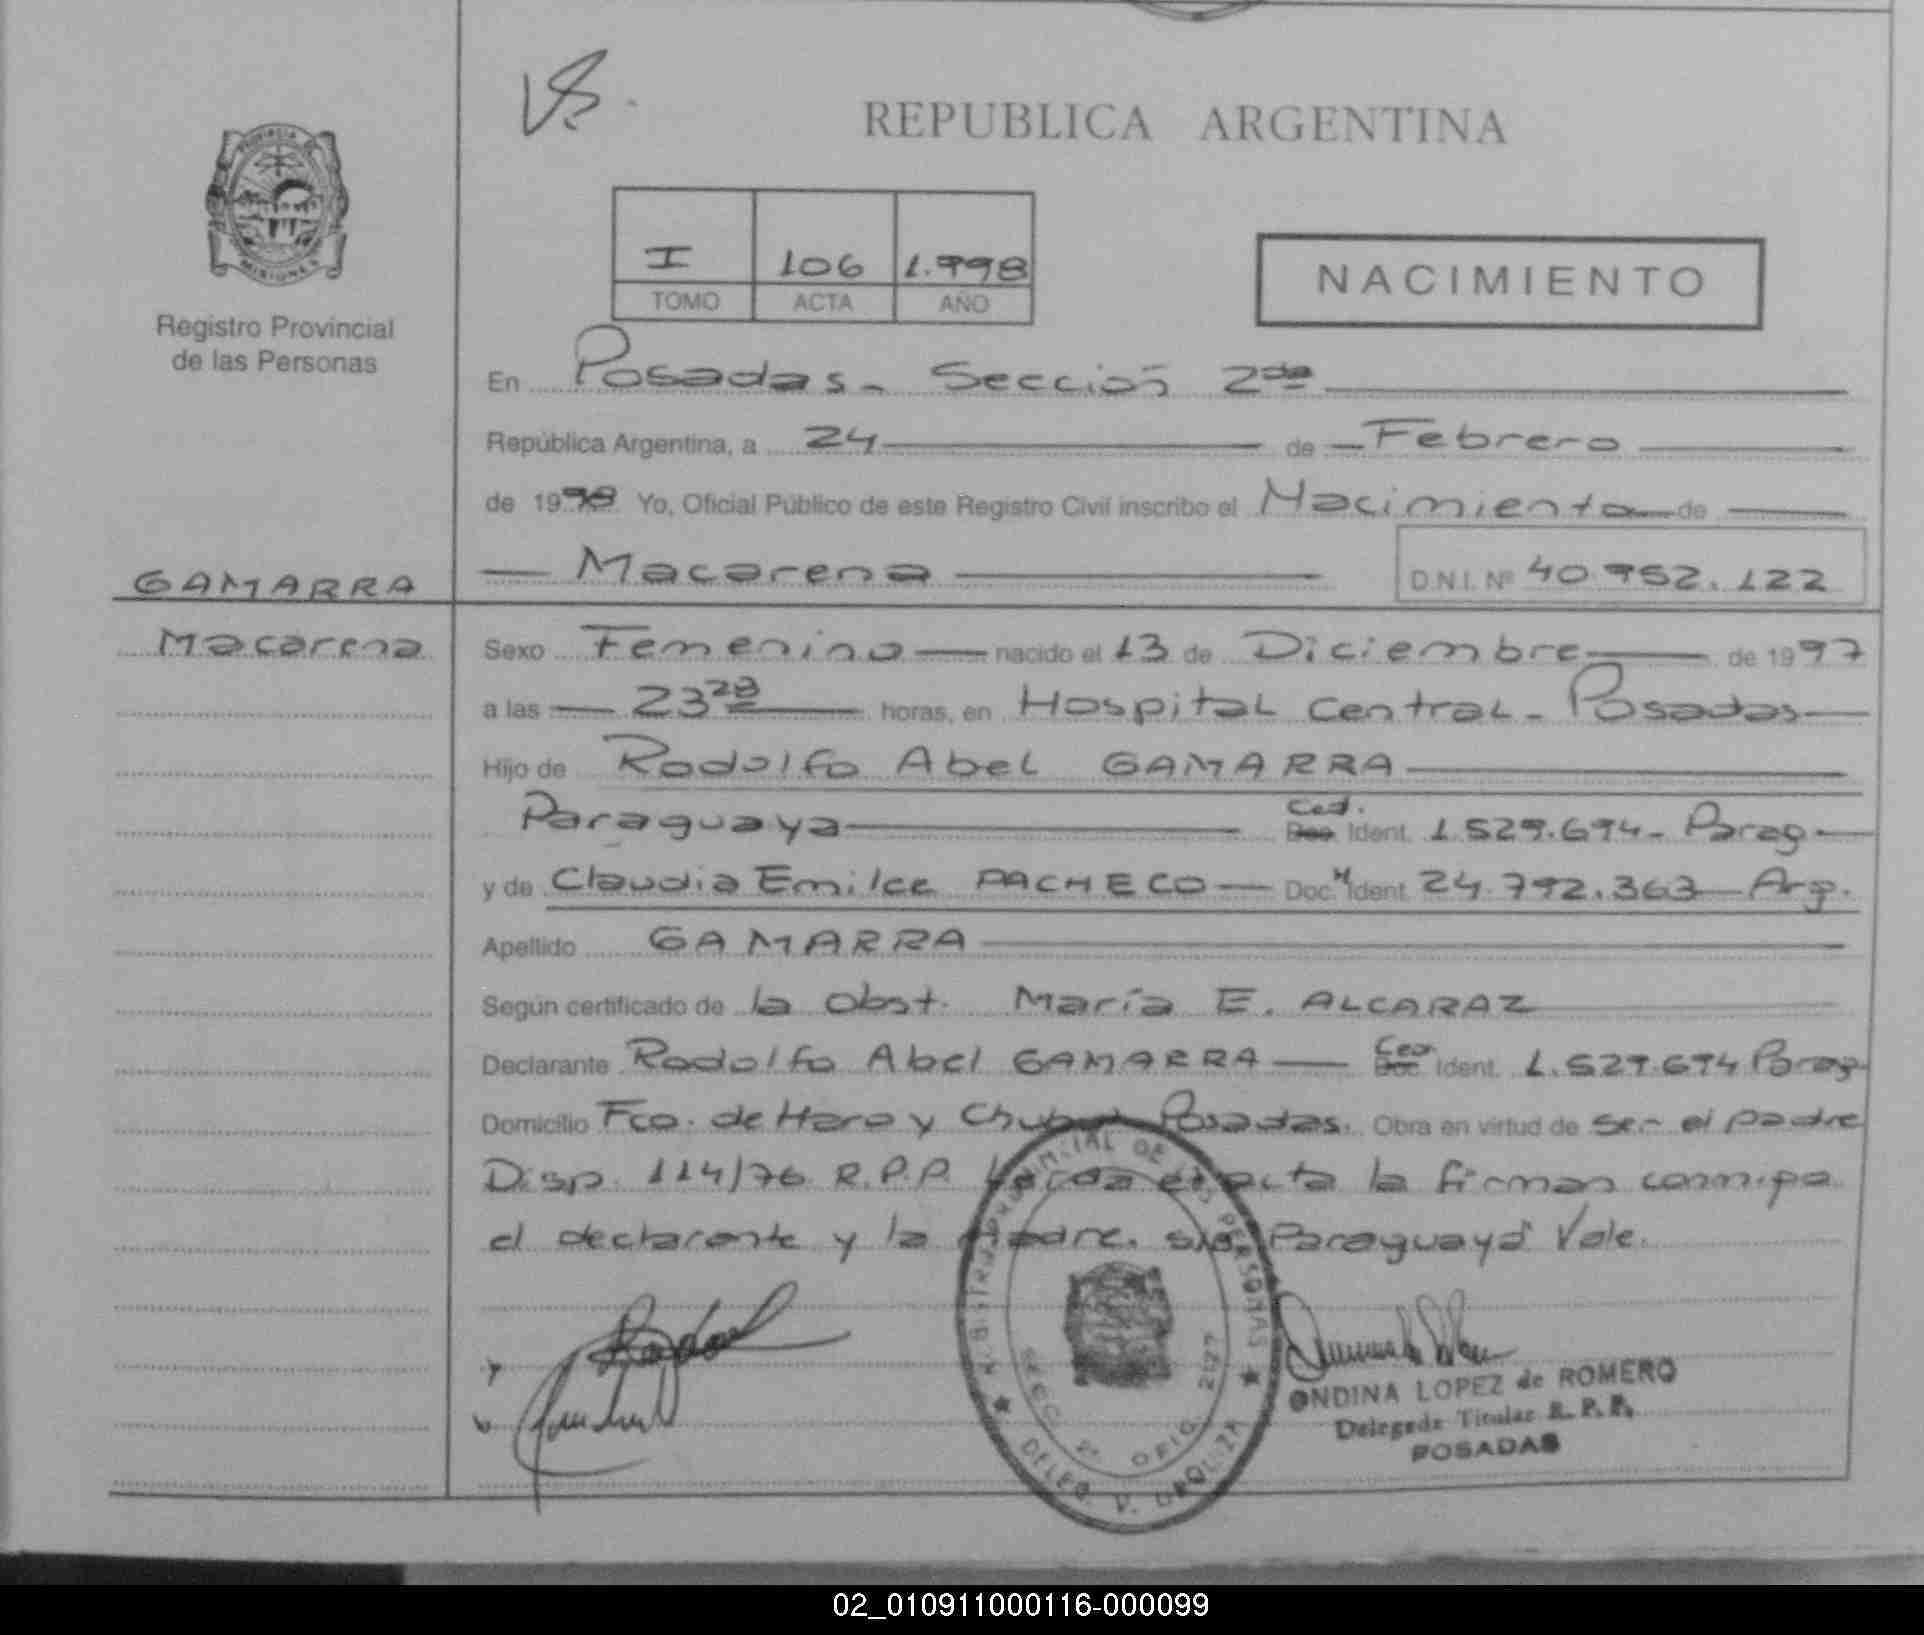 REPUBLICA ARGENTINA
PROVINCIA
MISIONES
Registro Provincial
de las Personas
I 106 1.998
TOMO ACTA AÑO
NACIMIENTO
En Posadas - Sección 2da
República Argentina, a 24 de Febrero
de 1998 Yo, Oficial Público de este Registro Civil inscribo el Nacimiento de
GAMARRA
Macarena
Macarena D.N.I. Nº 40.952.122
Sexo Femenino nacido el 13 de Diciembre de 1997
a las 23 28 horas, en Hospital Central - Posadas
Hijo de Rodolfo Abel GAMARRA
Paraguaya Ced. Doc. Ident. 1.529.694 - Parag
y de Claudia Emilce PACHECO Doc. Ident. 24.792.363 Arg.
Apellido GAMARRA
Según certificado de la Obst. María E. ALCARAZ
Declarante Rodolfo Abel GAMARRA Ced Doc Ident. 1.529.694 Parag
Domicilio Fco. de Haro y Chubut Posadas. Obra en virtud de ser el padre
Disp. 114/76 R.P.P. Leída el acta la firman conmigo
el declarante y la Madre. s/r "Paraguaya" Vale.
REGISTRO PROVINCIAL DE LAS PERSONAS
SECC. 2ª OFIC. 2527
DELEG. V. URQUIZA
ONDINA LOPEZ de ROMERO
Delegada Titular R. P. P.
POSADAS
02_010911000116-000099